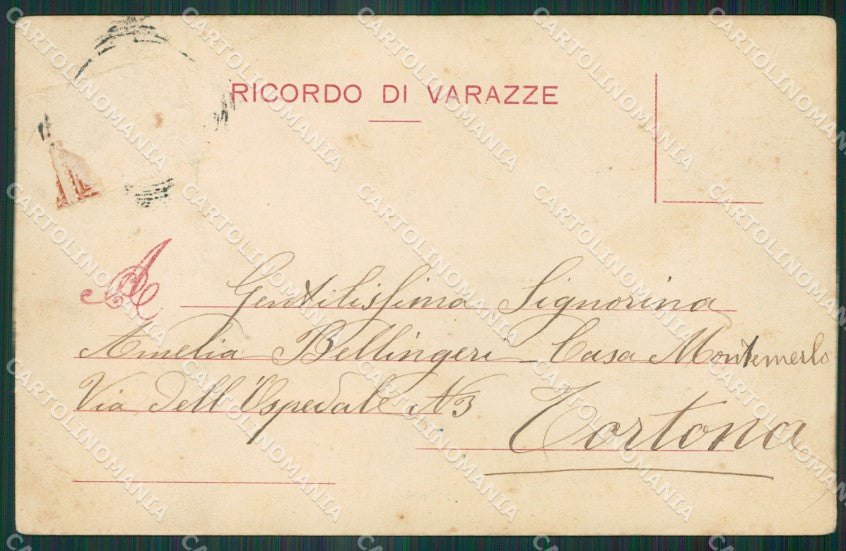 RICORDO DI VARAZZE
A
Gentilissima Signorina
Amelia Bellingeri - Casa Montemerlo
Via dell'Ospedale N 3
Tortona
CARTOLINOMANIA